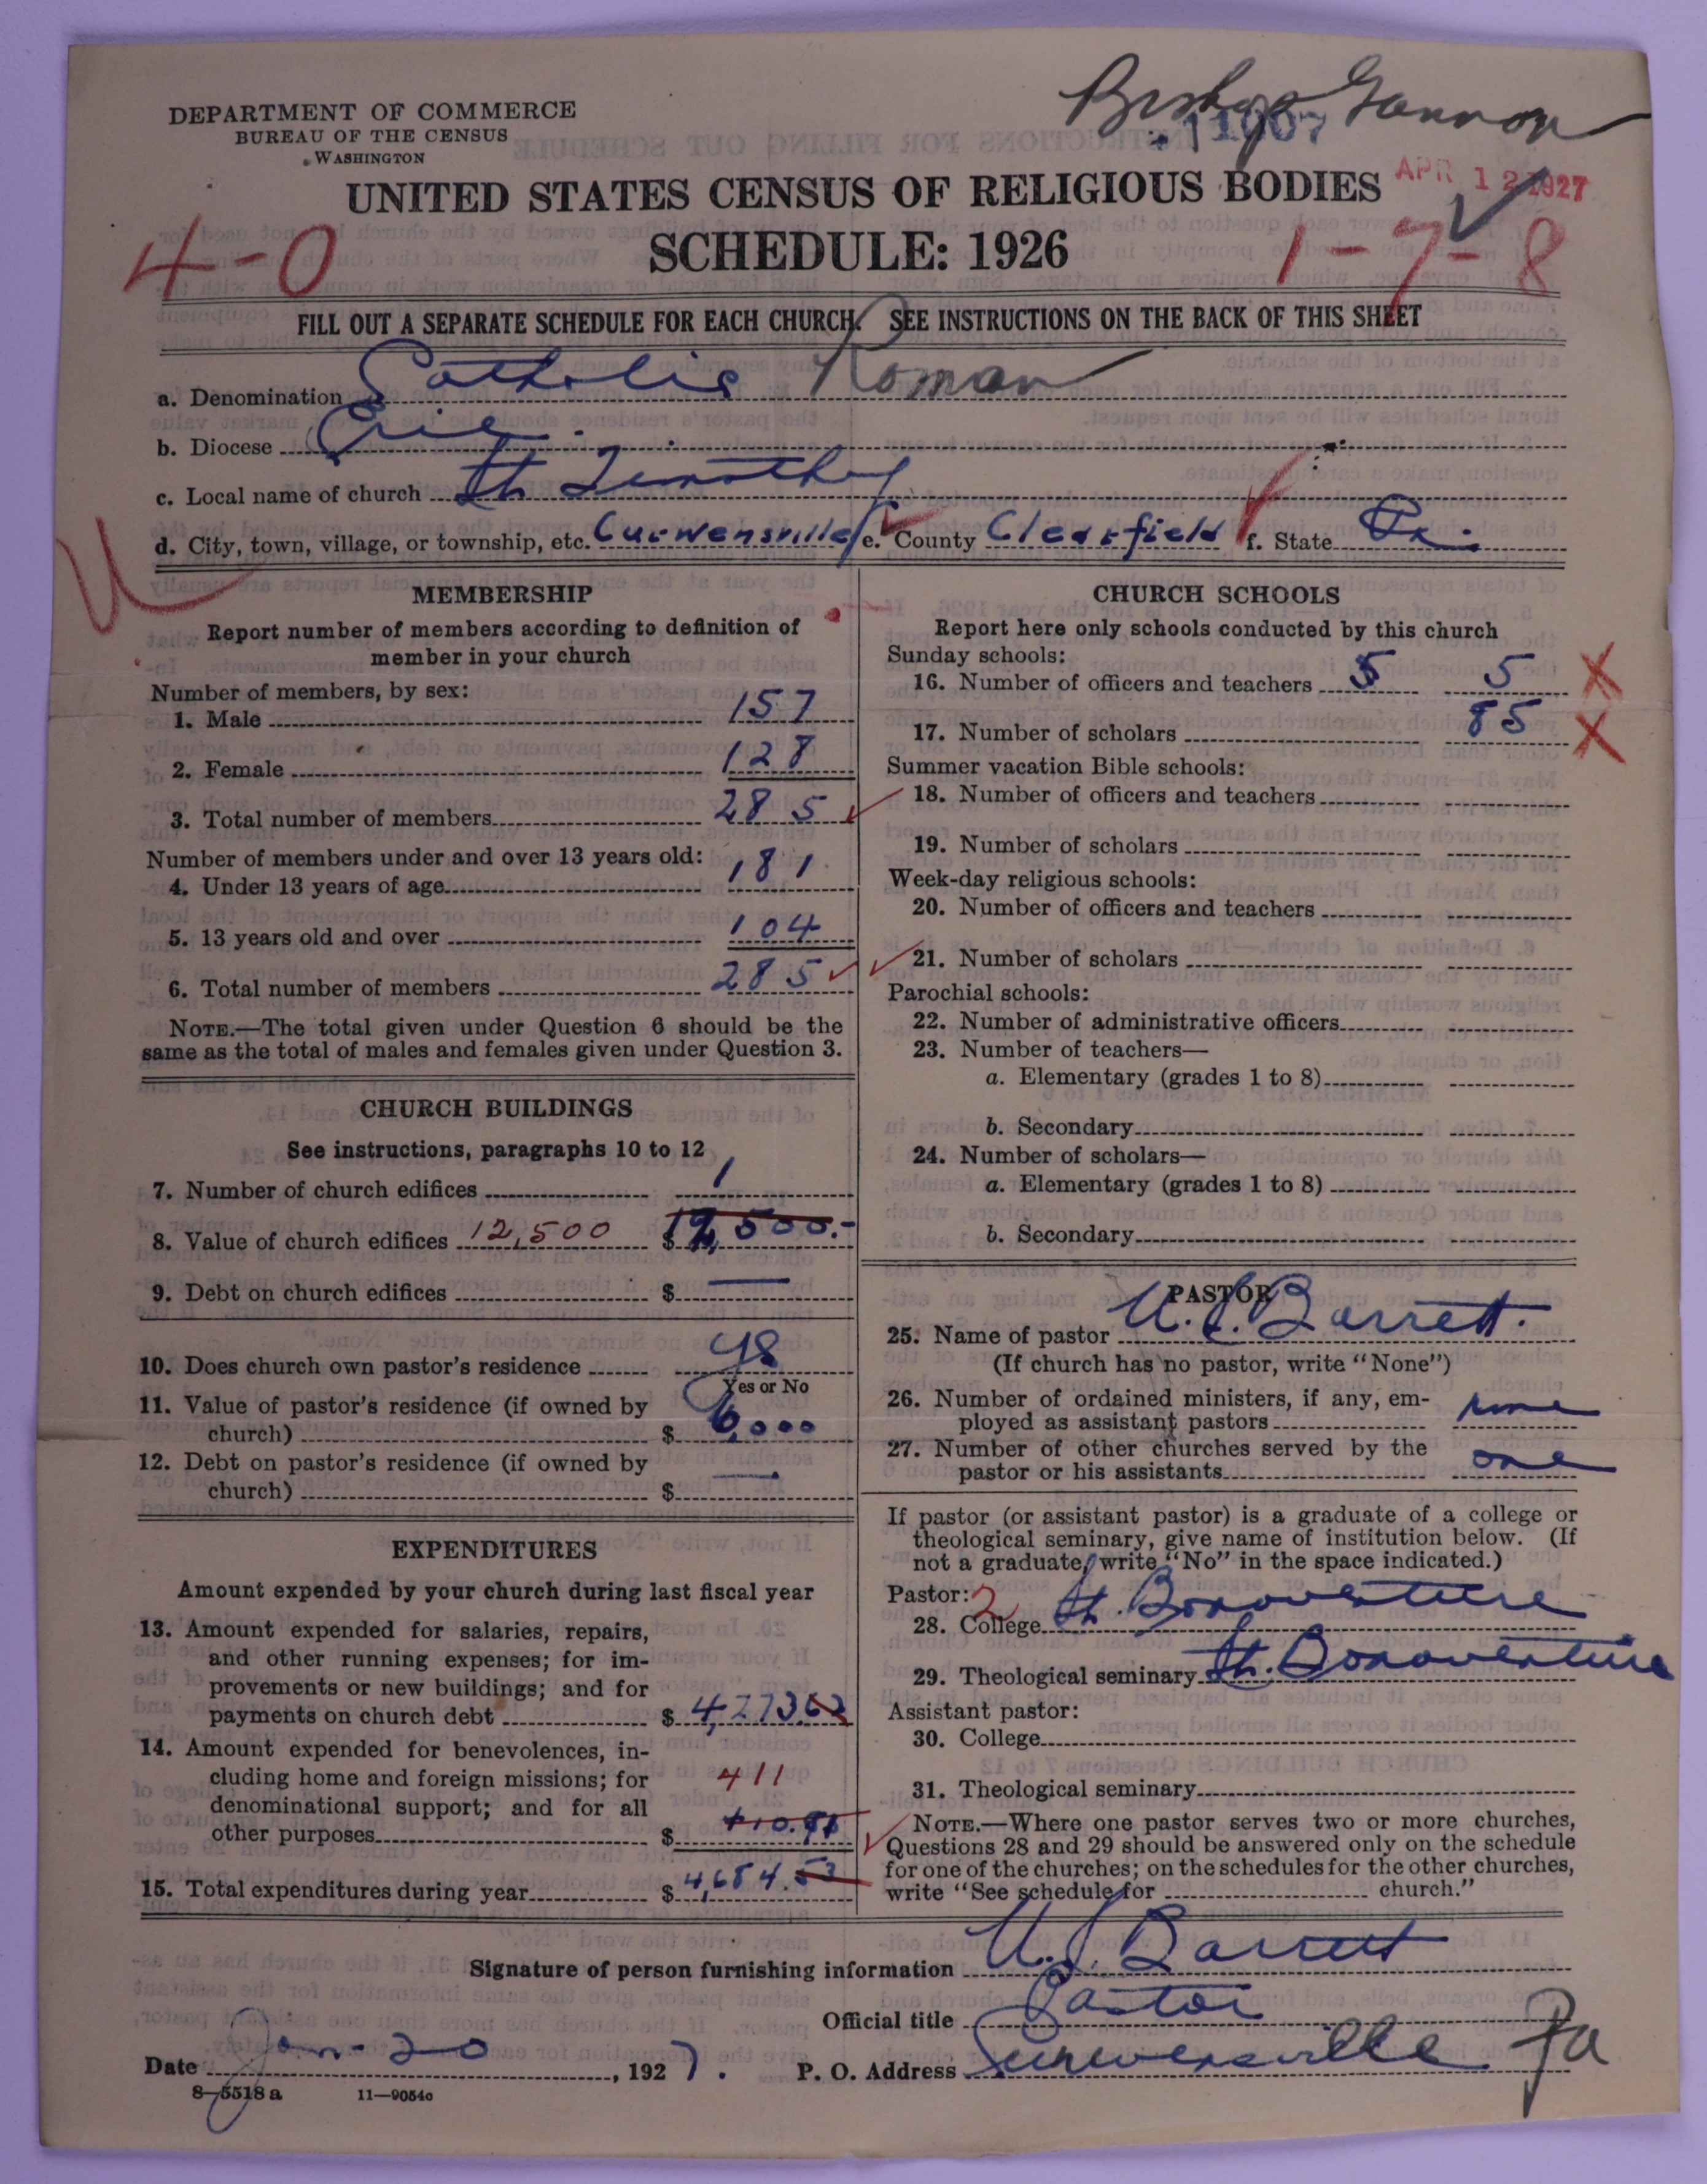 Bishop Gannon
11007
DEPARTMENT OF COMMERCE
BUREAU OF THE CENSUS
WASHINGTON
APR 12 1927
UNITED STATES CENSUS OF RELIGIOUS BODIES
SCHEDULE: 1926
4-0
1-7-8
FILL OUT A SEPARATE SCHEDULE FOR EACH CHURCH. SEE INSTRUCTIONS ON THE BACK OF THIS SHEET
a. Denomination Catholic Roman
b. Diocese Erie
c. Local name of church St Timothy
d. City, town, village, or township, etc. Curwensville e. County Clearfield f. State Pa.
MEMBERSHIP
Report number of members according to definition of
member in your church
Number of members, by sex:
1. Male 157
2. Female 128
3. Total number of members 285
Number of members under and over 13 years old:
4. Under 13 years of age 181
5. 13 years old and over 104
6. Total number of members 285
NOTE.—The total given under Question 6 should be the
same as the total of males and females given under Question 3.
CHURCH BUILDINGS
See instructions, paragraphs 10 to 12
7. Number of church edifices 1
8. Value of church edifices 12,500 $ 12,500.-
9. Debt on church edifices $ —
10. Does church own pastor's residence yes
Yes or No
11. Value of pastor's residence (if owned by
church) $ 6,000
12. Debt on pastor's residence (if owned by
church) $ —
EXPENDITURES
Amount expended by your church during last fiscal year
13. Amount expended for salaries, repairs,
and other running expenses; for im-
provements or new buildings; and for
payments on church debt $ 4,273.62
14. Amount expended for benevolences, in-
cluding home and foreign missions; for 411
denominational support; and for all
other purposes $ 410.91
15. Total expenditures during year $ 4,684.53
CHURCH SCHOOLS
Report here only schools conducted by this church
Sunday schools:
16. Number of officers and teachers 5 5 X
17. Number of scholars 85 X
Summer vacation Bible schools:
18. Number of officers and teachers
19. Number of scholars
Week-day religious schools:
20. Number of officers and teachers
21. Number of scholars
Parochial schools:
22. Number of administrative officers
23. Number of teachers—
a. Elementary (grades 1 to 8)
b. Secondary
24. Number of scholars—
a. Elementary (grades 1 to 8)
b. Secondary
PASTOR
25. Name of pastor Barrett.
(If church has no pastor, write "None")
26. Number of ordained ministers, if any, em-
ployed as assistant pastors none
27. Number of other churches served by the
pastor or his assistants one
If pastor (or assistant pastor) is a graduate of a college or
theological seminary, give name of institution below. (If
not a graduate, write "No" in the space indicated.)
Pastor: 2
28. College St. Bonaventure
29. Theological seminary St. Bonaventure
Assistant pastor:
30. College
31. Theological seminary
NOTE.—Where one pastor serves two or more churches,
Questions 28 and 29 should be answered only on the schedule
for one of the churches; on the schedules for the other churches,
write "See schedule for church."
Signature of person furnishing information Barrett
Official title Pastor
Date Jan-20, 1927. P. O. Address Curwensville Pa
8-5518 a 11-9054c